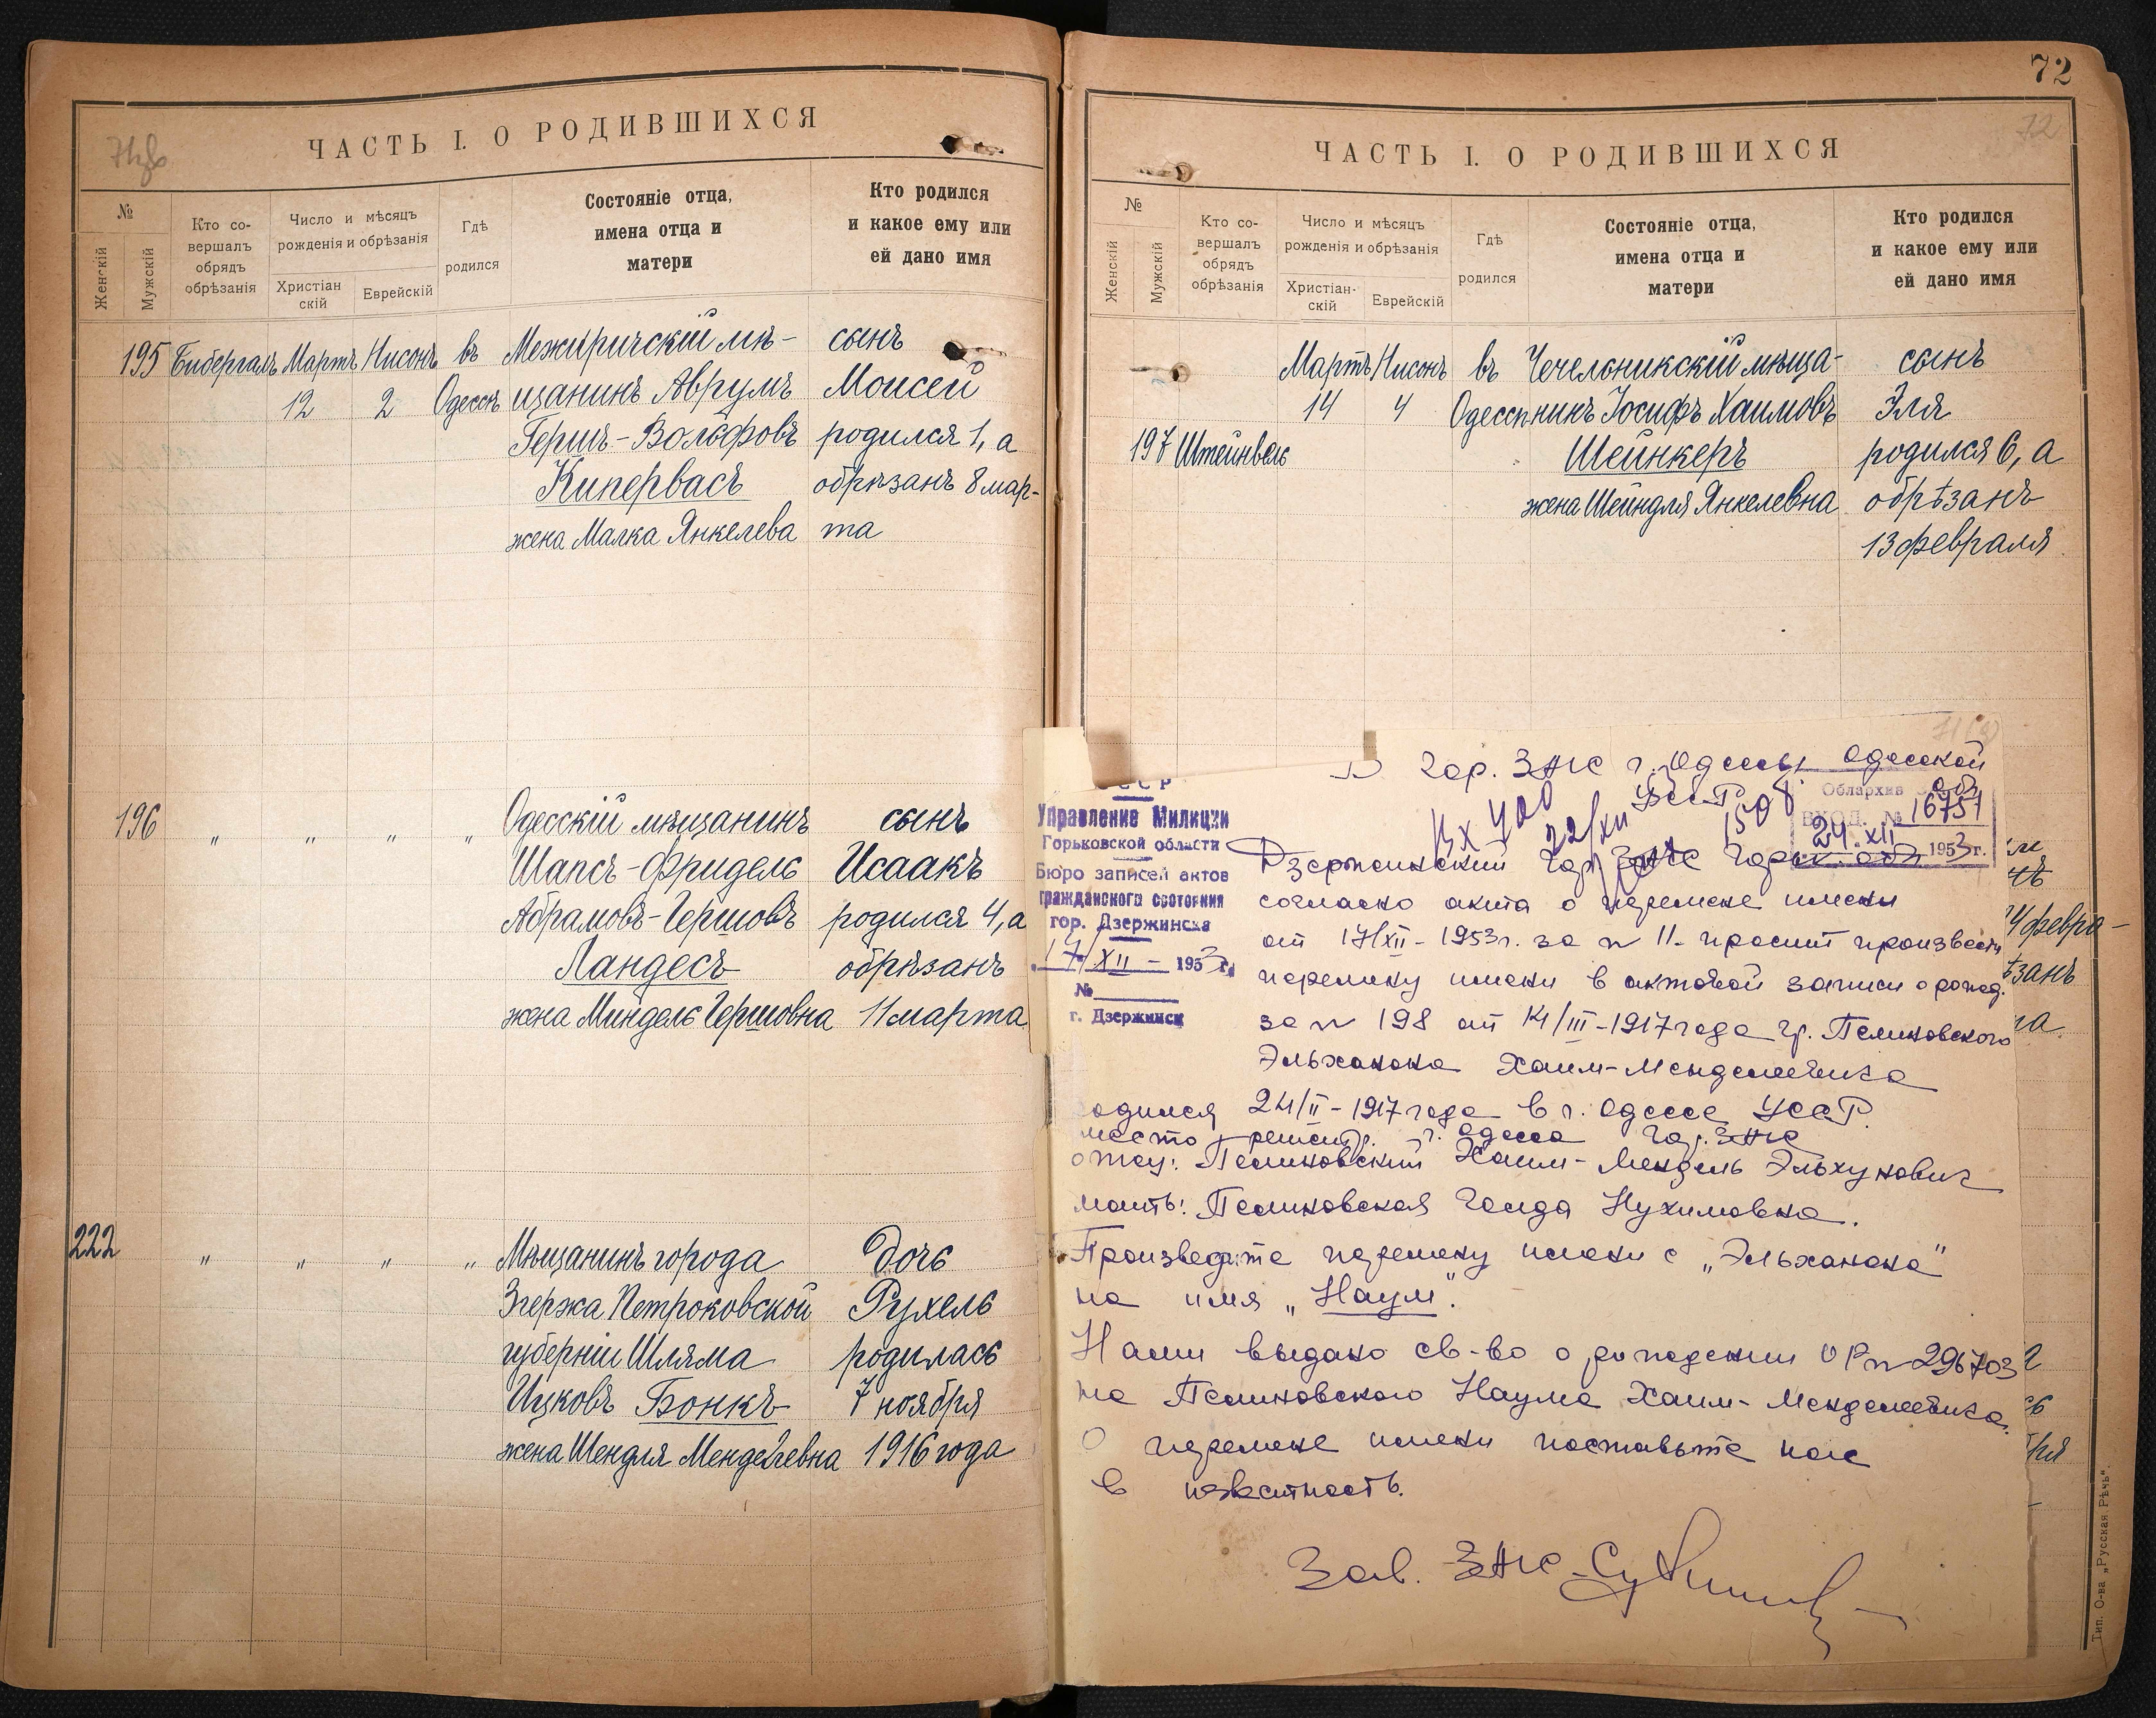 71об
ЧАСТЬ I. О РОДИВШИХСЯ
№
Женскій
Мужскій
Кто со-
вершалъ
обрядъ
обрѣзанія
Число и мѣсяцъ
рожденія и обрѣзанія
Христіан
скій
Еврейскій
Гдѣ
родился
Состояніе отца,
имена отца и
матери
Кто родился
и какое ему или
ей дано имя
195 Бибергалъ Мартъ Нисонъ въ Межиричскій мѣ- сынъ
12 2 Одессѣ щанинъ Аврумъ Моисей
Гершъ-Вольфовъ родился 1, а
Кипервасъ обрѣзанъ 8 мар-
жена Малка Янкелева та
196 " " " " Одесскій мѣщанинъ сынъ
Шапсъ-Фридель Исаакъ
Абрамовъ-Гершовъ родился 4, а
Ландесъ обрѣзанъ
жена Миндель Гершовна 11 марта
222 " " " " Мѣщанинъ города Дочь
Згержа Петроковской Рухель
губерніи Шляма родилась
Ицковъ Бонкъ 7 ноября
жена Шендля Менделевна 1916 года
72
72
ЧАСТЬ I. О РОДИВШИХСЯ
№
Женскій
Мужскій
Кто со-
вершалъ
обрядъ
обрѣзанія
Число и мѣсяцъ
рожденія и обрѣзанія
Христіан-
скій
Еврейскій
Гдѣ
родился
Состояніе отца,
имена отца и
матери
Кто родился
и какое ему или
ей дано имя
Мартъ Нисонъ въ Чечельникскій мѣща- сынъ
14 4 Одессѣ нинъ Іосифъ Хаимовъ Эля
197 Штейнвель Шейнкеръ родился 6, а
жена Шейндля Янкелевна обрѣзанъ
13 февраля
В Гор. ЗАГС г. Одессы Одесской
обл. УССР
Вх 400
22/XII
1508
Облархив
ВХОД. № 16751
24. XII 1953 г.
Управление Милиции
Горьковской области
Бюро записей актов
гражданского состояния
гор. Дзержинска
17/XII - 1953 г.
№
г. Дзержинск
Дзержинский Гор ЗАГС Горьк. обл
согласно акта о перемене имени
от 17/XII - 1953 г. за № 11 - просит произвести
перемену имени в актовой записи о рожд.
за № 198 от 14/III - 1917 года гр. Пелиновского
Эльханона Хаим-Менделевича
родился 24/II - 1917 года в г. Одессе УССР.
место регистр. г. Одесса Гор. ЗАГС
отец: Пелиновский Хаим-Мендель Эльхунович
мать: Пелиновская Голда Нухимовна.
Произведите перемену имени с „Эльханона"
на имя „Наум".
Нами выдано св-во о рождении № 296703
на Пелиновского Наума Хаим-Менделевича.
О перемене имени поставьте нас
в известность.
Зав. ЗАГС
4 февра-
Тип. О-ва „Русская Рѣчь".